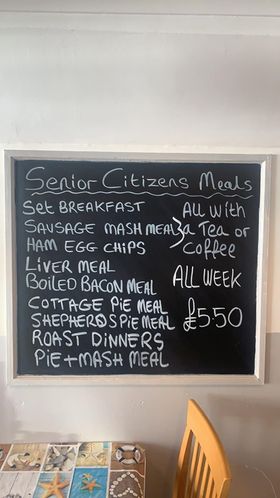 Senior Citizens Meals
Set BREAKFAST
SAUSAGE MASH MEAL
HAM EGG CHIPS
LIVER MEAL
BOILED BACON MEAL
COTTAGE PIE MEAL
SHEPHERDS PIE MEAL
ROAST DINNERS
PIE + MASH MEAL
ALL With
a Tea or
Coffee
ALL WEEK
£5.50